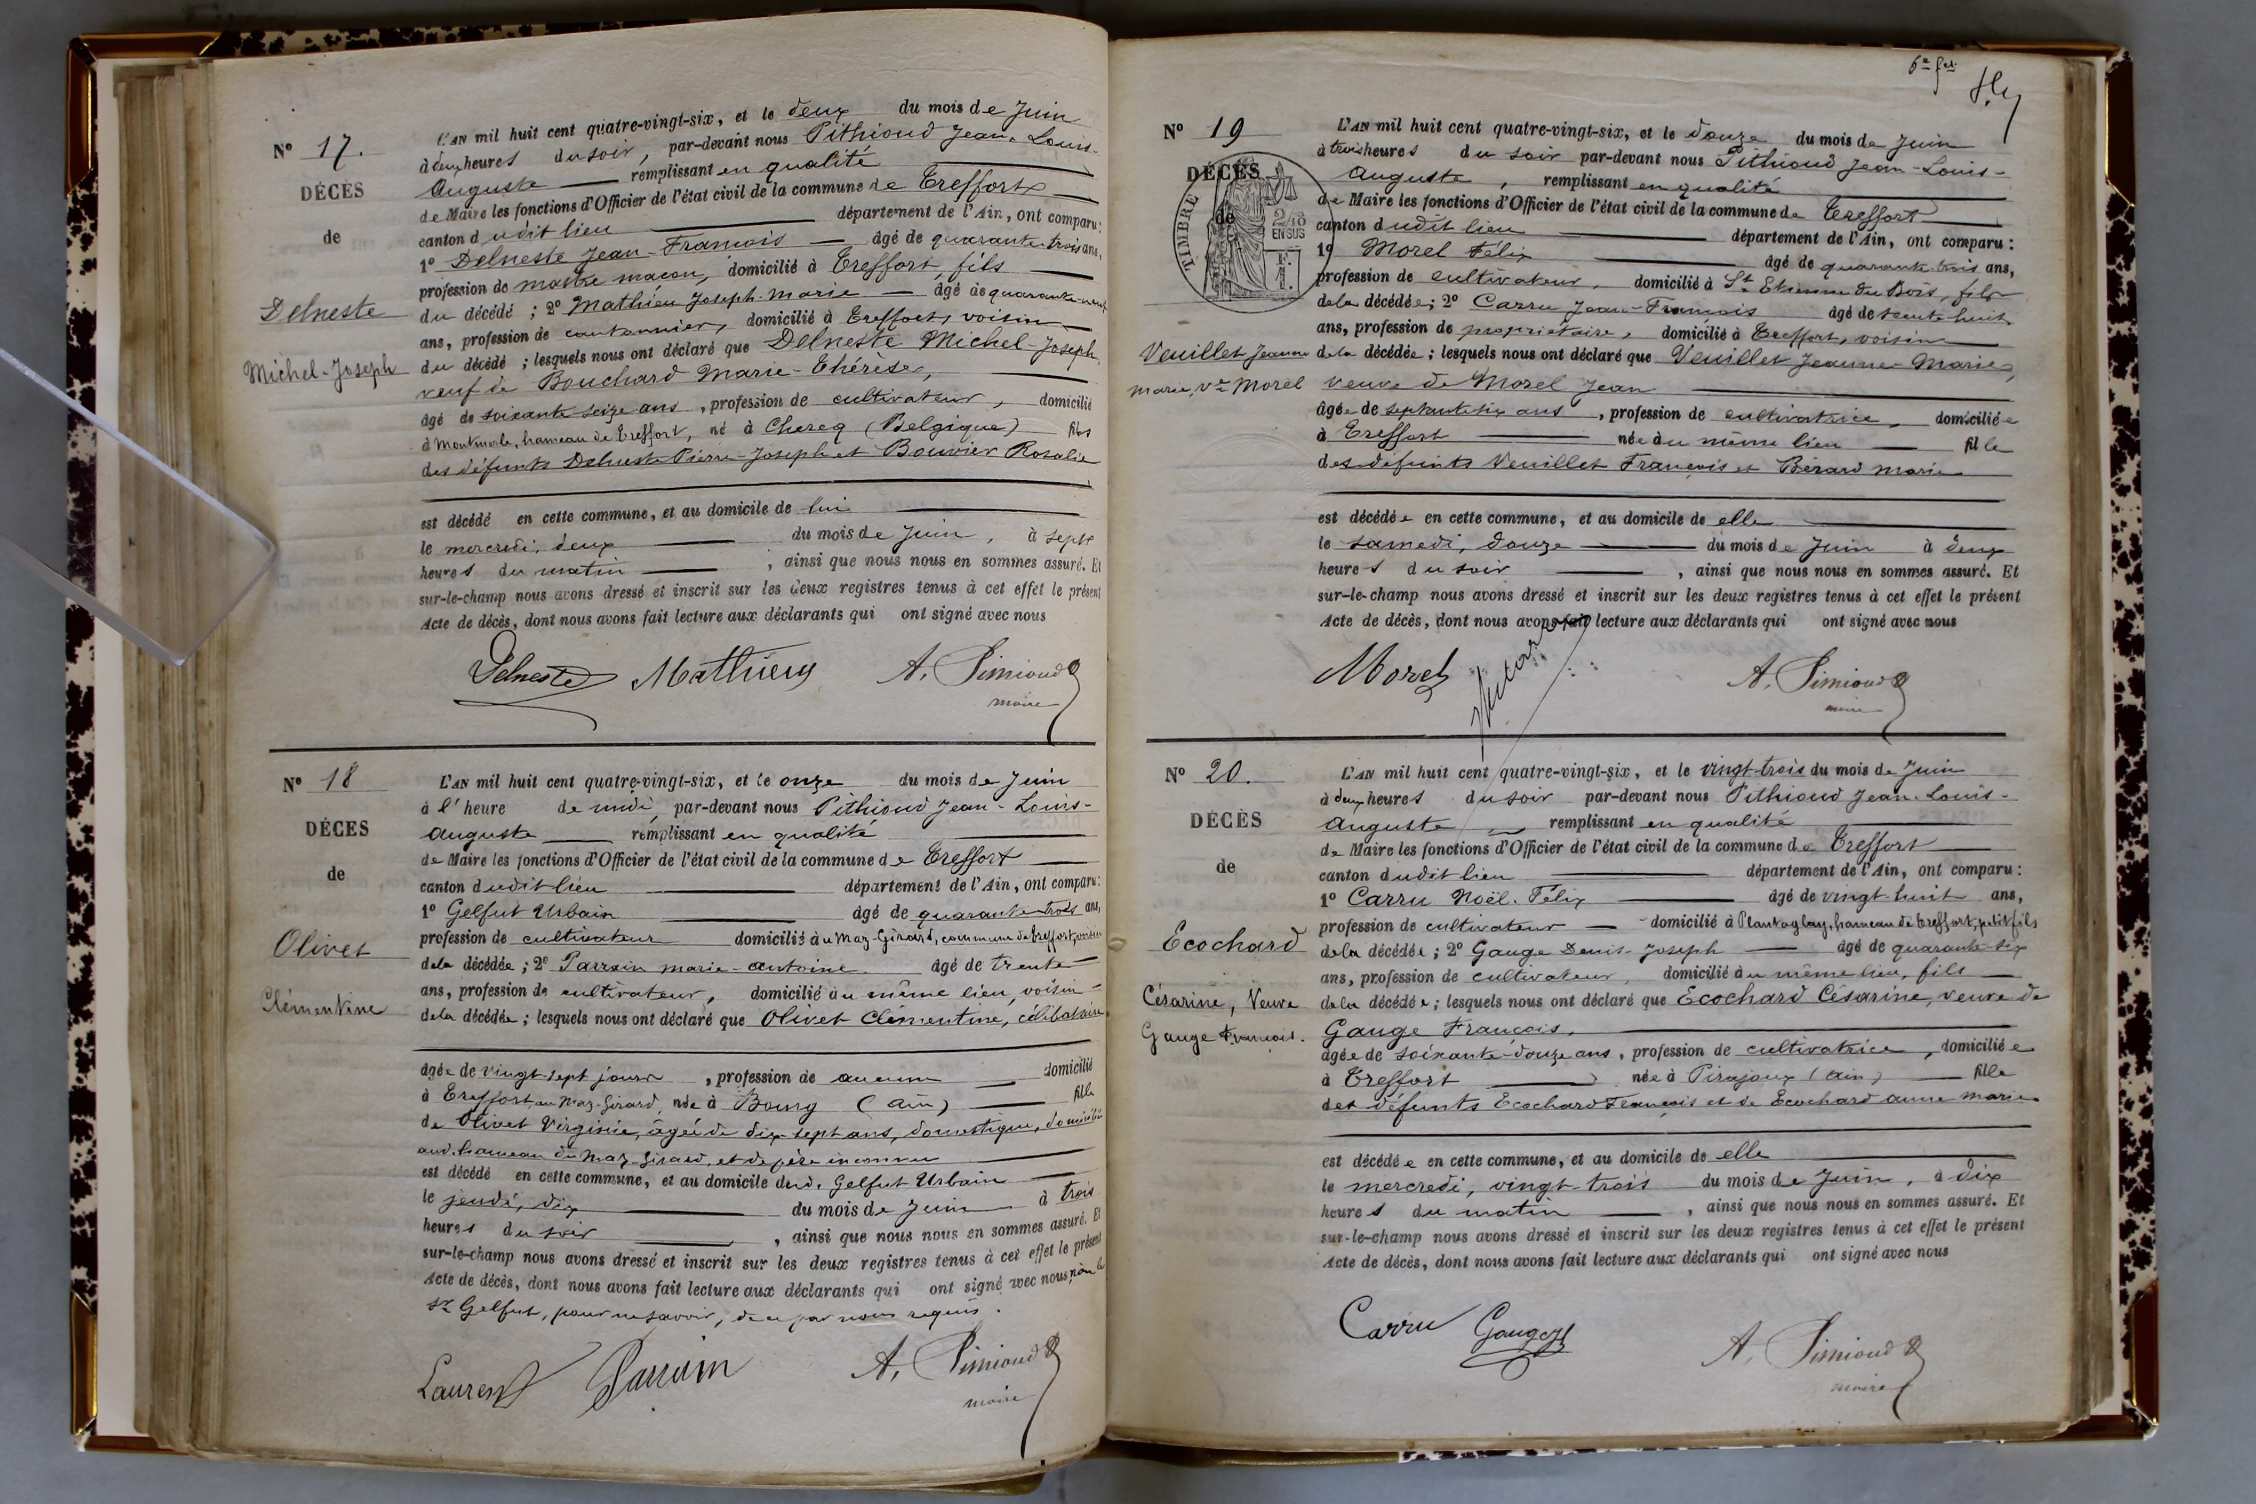 N° 17.
DÉCÈS
de
Delneste
Michel-Joseph
L'AN mil huit cent quatre-vingt-six, et le deux du mois de Juin
à deux heures du soir, par-devant nous Pithioud Jean-Louis-
Auguste remplissant en qualité
de Maire les fonctions d'Officier de l'état civil de la commune de Treffort
canton dudit lieu département de l'Ain, ont comparu:
1° Delneste Jean-François âgé de quarante-trois ans,
profession de maître maçon, domicilié à Treffort, fils
du décédé ; 2° Mathieu Joseph-Marie âgé de quarante-neuf
ans, profession de cantonnier, domicilié à Treffort, voisin
du décédé ; lesquels nous ont déclaré que Delneste Michel-Joseph,
veuf de Bouchard Marie-Thérèse,
âgé de soixante seize ans, profession de cultivateur, domicilié
à Montmerle, hameau de Treffort, né à Chercq (Belgique) fils
des défunts Delneste Pierre-Joseph et Bouvier Rosalie
est décédé en cette commune, et au domicile de lui
le mercredi, deux du mois de Juin, à sept
heures du matin ; ainsi que nous nous en sommes assuré. Et
sur-le-champ nous avons dressé et inscrit sur les deux registres tenus à cet effet le présent
Acte de décès, dont nous avons fait lecture aux déclarants qui ont signé avec nous
Delneste Mathieu A. Pithioud
maire
N° 18
DÉCÈS
de
Olivet
Clémentine
L'AN mil huit cent quatre-vingt-six, et le onze du mois de Juin
à l'heure de midi, par-devant nous Pithioud Jean-Louis-
Auguste remplissant en qualité
de Maire les fonctions d'Officier de l'état civil de la commune de Treffort
canton dudit lieu département de l'Ain, ont comparu:
1° Gelfut Urbain âgé de quarante-trois ans,
profession de cultivateur domicilié au Maz-Girard, commune de Treffort, voisin
de la décédée ; 2° Parrain Marie-Antoine âgé de trente
ans, profession de cultivateur, domicilié au même lieu, voisin
de la décédée ; lesquels nous ont déclaré que Olivet Clémentine, célibataire
âgée de vingt-sept jours, profession de aucune domicilié
à Treffort, au Maz-Girard, née à Bourg (Ain) fille
de Olivet Virginie, âgée de dix-sept ans, domestique, domiciliée
aud. hameau du Maz-Girard, et de père inconnu
est décédé en cette commune, et au domicile dud. Gelfut Urbain
le jeudi, dix du mois de Juin à trois
heures du soir, ainsi que nous nous en sommes assuré. Et
sur-le-champ nous avons dressé et inscrit sur les deux registres tenus à cet effet le présent
Acte de décès, dont nous avons fait lecture aux déclarants qui ont signé avec nous, non le
sr Gelfut, pour ne savoir, de ce par nous requis.
Laurent Parrain A. Pithioud
maire
N° 19
DÉCÈS
de
TIMBRE
EN SUS
Veuillet Jeanne
Marie, Ve Morel
L'AN mil huit cent quatre-vingt-six, et le douze du mois de Juin
à trois heures du soir par-devant nous Pithioud Jean-Louis-
Auguste, remplissant en qualité
de Maire les fonctions d'Officier de l'état civil de la commune de Treffort
canton dudit lieu département de l'Ain, ont comparu :
1° Morel Félix âgé de quarante-trois ans,
profession de cultivateur, domicilié à St Etienne du Bois, fils
de la décédée ; 2° Carru Jean-François âgé de trente-huit
ans, profession de propriétaire, domicilié à Treffort, voisin
de la décédée ; lesquels nous ont déclaré que Veuillet Jeanne-Marie,
veuve de Morel Jean
âgée de septante six ans, profession de cultivatrice, domiciliée
à Treffort née au même lieu fille
des défunts Veuillet François et Bérard Marie
est décédée en cette commune, et au domicile de elle
le samedi, douze du mois de Juin à deux
heures du soir, ainsi que nous nous en sommes assuré. Et
sur-le-champ nous avons dressé et inscrit sur les deux registres tenus à cet effet le présent
Acte de décès, dont nous avons fait lecture aux déclarants qui ont signé avec nous
Morel A. Pithioud
maire
N° 20.
DÉCÈS
de
Ecochard
Césarine, Veuve
Gauge François.
L'AN mil huit cent quatre-vingt-six, et le vingt-trois du mois de Juin
à deux heures du soir par-devant nous Pithioud Jean-Louis-
Auguste remplissant en qualité
de Maire les fonctions d'Officier de l'état civil de la commune de Treffort
canton dudit lieu département de l'Ain, ont comparu :
1° Carru Noël-Félix âgé de vingt-huit ans,
profession de cultivateur domicilié à Plantaglay, hameau de Treffort, petit fils
de la décédée ; 2° Gauge Denis-Joseph âgé de quarante-six
ans, profession de cultivateur, domicilié au même lieu, fils
de la décédée ; lesquels nous ont déclaré que Ecochard Césarine, veuve de
Gauge François,
âgée de soixante-douze ans, profession de cultivatrice, domiciliée
à Treffort née à Pirajoux (Ain) fille
des défunts Ecochard François et de Ecochard Anne Marie
est décédée en cette commune, et au domicile de elle
le mercredi, vingt-trois du mois de Juin, à dix
heures du matin, ainsi que nous nous en sommes assuré. Et
sur-le-champ nous avons dressé et inscrit sur les deux registres tenus à cet effet le présent
Acte de décès, dont nous avons fait lecture aux déclarants qui ont signé avec nous
Carru Gauge A. Pithioud
maire